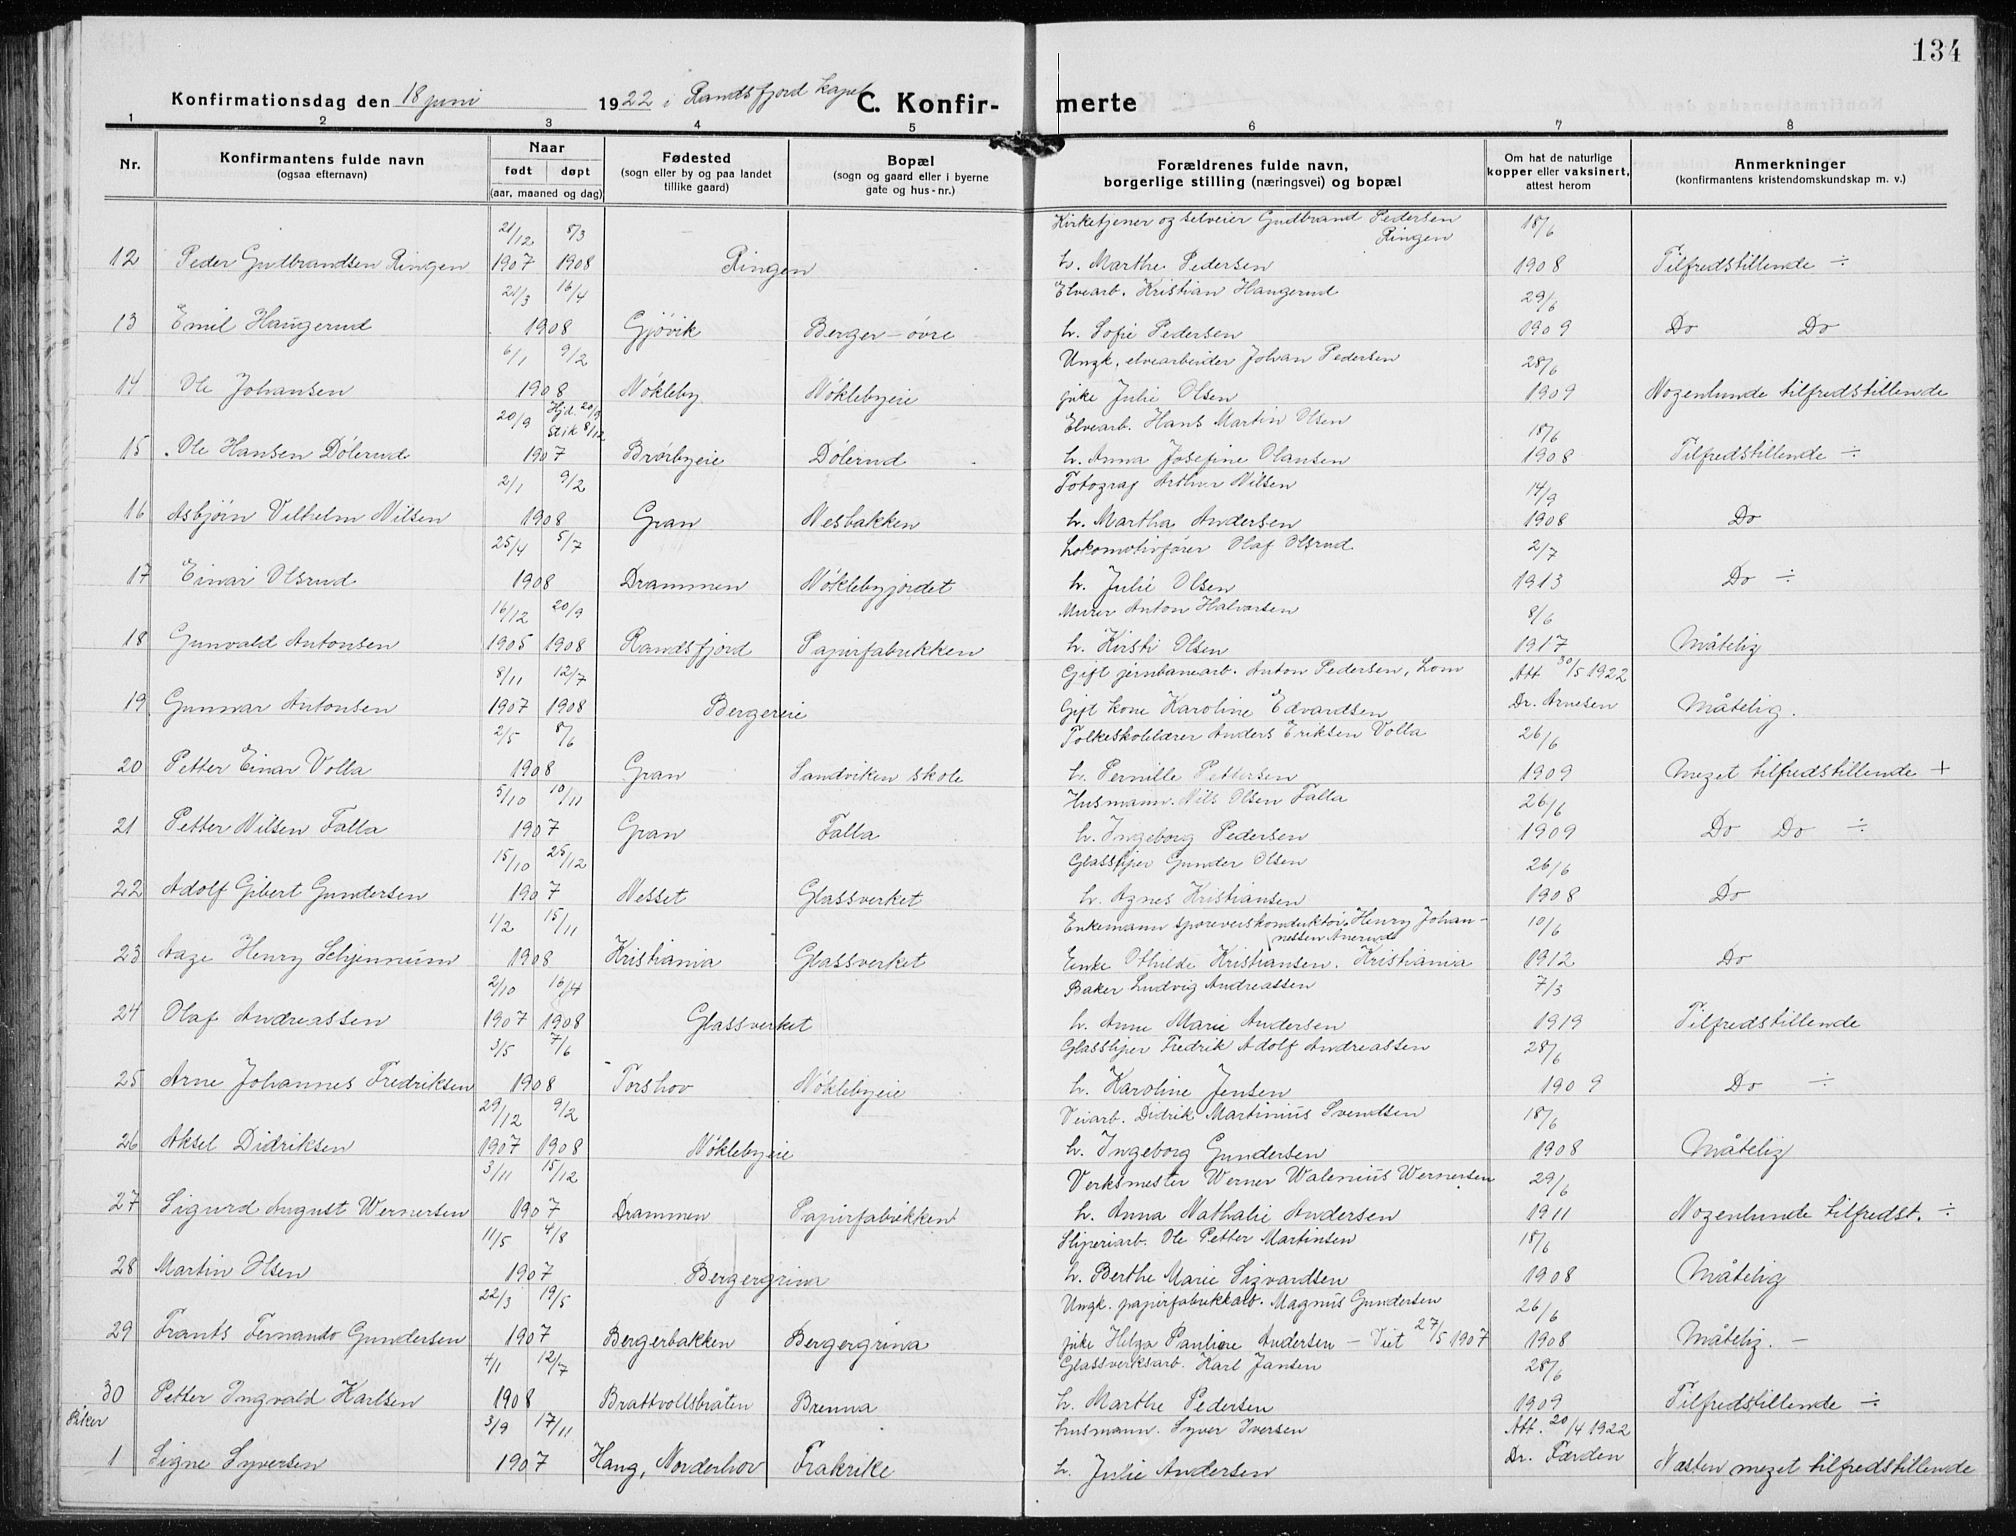 134
Konfirmationsdag den 18 juni 1922 i Randsfjord kapel C. Konfir- merte
1 2 3 4 5 6 7 8
Nr. Konfirmantens fulde navn (ogsaa efternavn) Naar født døpt (aar, maaned og dag) Fødested (sogn eller by og paa landet tillike gaard) Bopæl (sogn og gaard eller i byerne gate og hus-nr.) Forældrenes fulde navn, borgerlige stilling (næringsvei) og bopæl Om hat de naturlige kopper eller vaksinert, attest herom Anmerkninger (konfirmantens kristendomskundskap m. v.)
21/12 8/3 Kirketjener og selveier Gudbrand Pedersen Ringen 18/6
12 Peder Gudbrandsen Ringen 1907 1908 Ringen h. Marthe Pedersen 1908 Tilfredstillende ÷
21/3 16/4 Elvearb. Kristian Haugerud 29/6
13 Emil Haugerud 1908 Gjøvik Berger-øvre h. Sofie Pedersen 1909 Do Do
6/1 9/2 Ungk. elvearbeider Johan Pedersen 28/6
14 Ole Johansen 1908 Nøkleby Nøklebyeie pike Julie Olsen 1909 Nogenlunde tilfredstillende
20/9 Hjd. 20/9 Stik 8/12 Elvearb. Hans Martin Olsen 18/6
15 Ole Hansen Dølerud 1907 Brørbyeie Dølerud h. Anna Josefine Olausen 1908 Tilfredstillende ÷
2/1 9/2 Fotograf Arthur Nilsen 14/9
16 Asbjørn Vilhelm Nilsen 1908 Gran Nesbakken h. Martha Andersen 1908 Do
25/4 5/7 Lokomotivfører Olaf Olsrud 2/7
17 Einar Olsrud 1908 Drammen Nøklebyjordet h. Julie Olsen 1913 Do ÷
16/12 20/9 Murer Anton Halvorsen 8/6
18 Gunvald Antonsen 1905 1908 Randsfjord Papirfabrikken h. Kirsti Olsen 1917 Måtelig
8/11 12/7 Gift jernbanearb. Anton Pedersen, Lom Att 30/5 1922
19 Gunnar Antonsen 1907 1908 Bergereie Gift kone Karoline Edvardsen Dr. Arnesen Måtelig.
2/5 8/6 Folkeskolelærer Anders Eriksen Volla 26/6
20 Petter Einar Volla 1908 Gran Sandviken skole h. Pernille Pettersen 1909 Meget tilfredstillende +
5/10 10/11 Husmann Nils Olsen Falla 26/6
21 Petter Nilsen Falla 1907 Gran Falla h. Ingeborg Pedersen 1909 Do Do ÷
15/10 26/12 Glassliper Gunder Olsen 26/6
22 Adolf Gibert Gundersen 1907 Nesset Glassverket h. Agnes Kristiansen 1908 Do
1/2 15/11 Enkemann sporveiskonduktør Henry Johannessen Anerud 10/6
23 Aage Henry Schjennum 1908 Kristiania Glassverket Enke Othilde Kristiansen. Kristiania 1912 Do
2/10 16/4 Baker Ludvig Andreassen 7/3
24 Olaf Andreassen 1907 1908 Glassverket h. Anne Marie Andersen 1919 Tilfredstillende
3/5 7/6 Glassliper Fredrik Adolf Andreassen 28/6
25 Arne Johannes Fredriksen 1908 Torshov Nøklebyeie h. Karoline Jensen 1909 Do ÷
29/12 9/2 Veiarb. Didrik Martinius Svendsen 18/6
26 Aksel Didriksen 1907 1908 Nøklebyeie h. Ingeborg Gundersen 1908 Måtelig
3/11 15/12 Verksmester Werner Walenius Wernersen 29/6
27 Sigurd August Wernersen 1907 Drammen Papirfabrikken h. Anna Nathalie Andersen 1911 Nogenlunde tilfredst. ÷
11/5 4/8 Sliperiarb. Ole Petter Martinsen 18/6
28 Martin Olsen 1907 Bergergrina h. Berthe Marie Sigvardsen 1908 Måtelig
22/3 19/5 Ungk. papirfabrikkarb. Magnus Gundersen 26/6
29 Frants Fernando Gundersen 1907 Bergerbakken Bergergrina pike Helga Pauline Andersen - Viet 27/5 1907 1908 Måtelig. -
4/1 12/7 Glassverksarb. Karl Jansen 28/6
30 Petter Ingvald Karlsen 1908 Brattvollsbråten Brenna h. Marthe Pedersen 1909 Tilfredstillende ÷
Piker 3/9 17/11 Husmann. Syver Iversen Att. 20/4 1922
1 Signe Syversen 1907 Haug, Norderhov Frakrike h. Julie Andersen Dr. Færden Næsten meget tilfredstillende